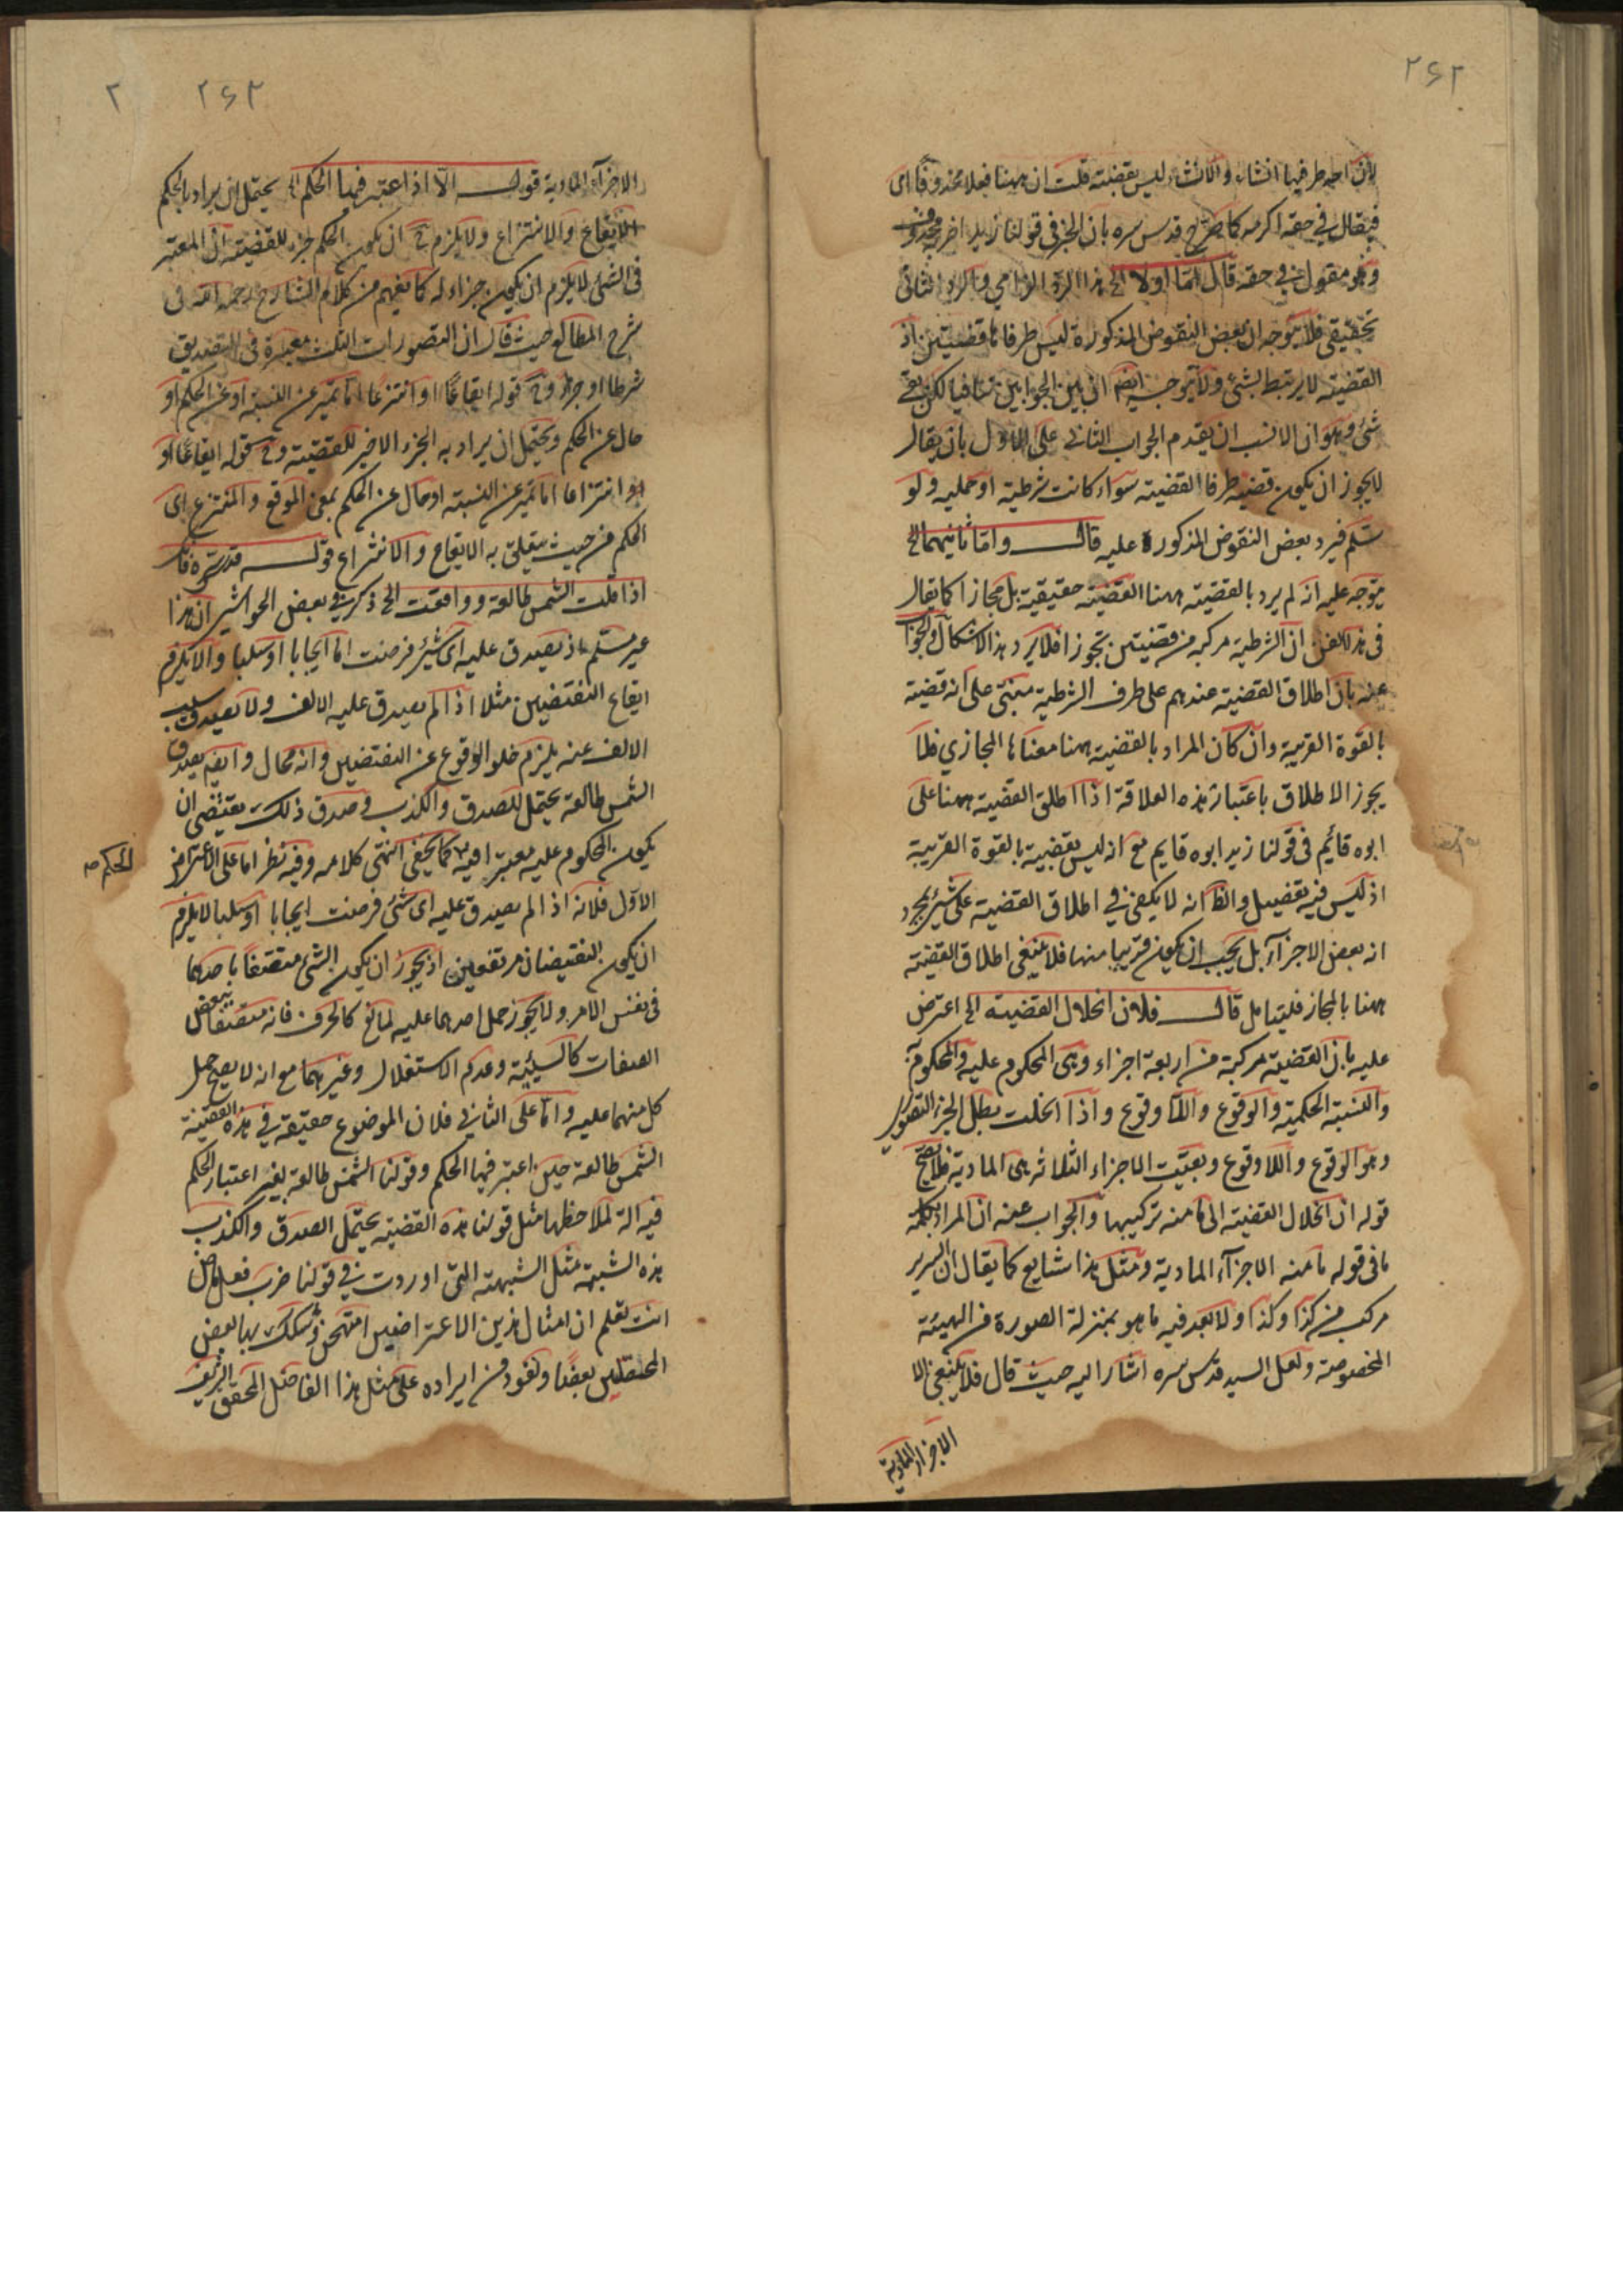 ۲۶۲
لان احد طرفيها انشاء والانشاء ليس بقضية قلت ان ههنا فعلا محذوفا اى
فيقال في حقه اكرمه كما صرح قدس سره بان الجزء في قولنا زيد اضربه محذوف
وهو مقول في حقه قال اما اولا الخ هذا الرد الزامي والرد الثانى
تحقيقي فلا يتوجه ان بعض النقوض المذكورة ليس طرفاها قضيتين اذ
القضية لا يرتبط بشئ ولا يتوجه ايضا ان بين الجوابين تنافيا لكن بقى
شئ وهو ان الانسب ان يقدم الجواب الثانى على الاول بان يقال
لا يجوز ان يكون قضية طرفا القضية سواء كانت شرطية او حملية ولو
سلم فيرد بعض النقوض المذكورة عليه قال واما ثانيهما الخ
يتوجه عليه انه لم يرد بالقضية ههنا القضية حقيقية بل مجازا كما يقال
في هذا الفن ان الشرطية مركبة من قضيتين تجوزا فلا يرد هذا الاشكال والجواب
عنه بان اطلاق القضية عندهم على طرف الشرطية مبنى على انه قضية
بالقوة القريبة وان كان المراد بالقضية ههنا معناها المجازي فلما
يجوز الاطلاق باعتبار هذه العلاقة اذا اطلق القضية ههنا على
ابوه قائم في قولنا زيد ابوه قايم مع انه ليس بقضية بالقوة القريبة
اذ ليس فيه تفصيل والظ انه لا يكفى في اطلاق القضية على شئ بمجرد
انه بعض الاجزاء بل يجب ان يكون قريبا منها فلا ينبغى اطلاق القضية
ههنا بالمجاز فليتامل قال فلان انحلال القضية الخ اعترض
عليه بان القضية مركبة من اربعة اجزاء وهى المحكوم عليه والمحكوم به
والنسبة الحكمية والوقوع واللا وقوع واذا انحلت بطل الجزء الصورى
وهو الوقوع واللا وقوع وبقيت الاجزاء الثلاثة هى المادية فلا يصح
قوله ان انحلال القضية الى ما منه تركيبها والجواب عنه ان المراد بكلمة
ما فى قوله ما منه الاجزاء المادية ومثل هذا شايع كما يقال ان السرير
مركب من كذا وكذا ولا يعد فيه ما هو بمنزلة الصورة من الهيئة
المخصوصة ولعل السيد قدس سره اشار اليه حيث قال فلا ينبغى الا
الاجزاء المادية
۲۶۳
۲
الاجزاء المادية قوله الا اذا اعتبر فيها الحكم الخ يحتمل ان يراد بالحكم
الايقاع والانتزاع ولا يلزم ح ان يكون الحكم جزء للقضية اذ المعتبر
فى الشئ لا يلزم ان يكون جزاء له كما يفهم من كلام الشارح رحمه الله فى
شرح المطالع حيث قال ان التصورات الثلث معتبرة فى التصديق
شرطا او جزاء وح قوله ايقاعا او انتزاعا اما تميز عن النسبة او عن الحكم او
حال عن الحكم ويحتمل ان يراد به الجزء الاخير للقضية وح قوله ايقاعا او
او انتزاعا اما تميز عن النسبة او حال عن الحكم بمعنى الموقع والمنتزع اى
الحكم من حيث يتعلق به الايقاع والانتزاع قوله قدس سره فان
اذا قلت الشمس طالعة ووافقت الخ ذكر في بعض الحواشى ان هذا
غير مستلم اذ يصدق عليه اى شئ فرضت اما ايجابا او سلبا والا يلزم
ايقاع النقيضين مثلا اذا لم يصدق عليه الالف ولا يصدق سلب
الالف عنه يلزم خلو الوقوع عن النقيضين وانه محال وايضا يصدق
الشمس طالعة يحتمل للصدق والكذب وصدق ذلك يقتضى ان
يكون المحكوم عليه معتبرا فيه كما يخفى انتهى كلامه وفيه نظر اما على الاعتراض
الحكم صح
الاول فلانه اذا لم يصدق عليه اى شئ فرضت ايجابا او سلبا لا يلزم
ان يكون النقيضان مرتفعين اذ يجوز ان يكون الشئ متصفا باحدهما
فى نفس الامر ولا يجوز حمل احدهما عليه لمانع كالحرف فانه متصف ببعض
الصفات كالسببية وعدم الاستقلال وغيرهما مع انه لا يصح حمل
كل منهما عليه واما على الثاني فلان الموضوع حقيقة في هذه القضية
الشمس طالعة حين اعتبر فيها الحكم وقولنا الشمس طالعة بغير اعتبار الحكم
فيه الة لملاحظها مثل قولنا هذه القضية يحتمل الصدق والكذب
هذه الشبهة مثل الشبهة التى اوردت في قولنا ضرب فعل ماض
انت تعلم ان امثال هذين الاعتراضين امتحن وشكك بها بعض
المحصلين بعضا ونعوذ من ايراده على مثل هذا الفاضل المحقق الشريف